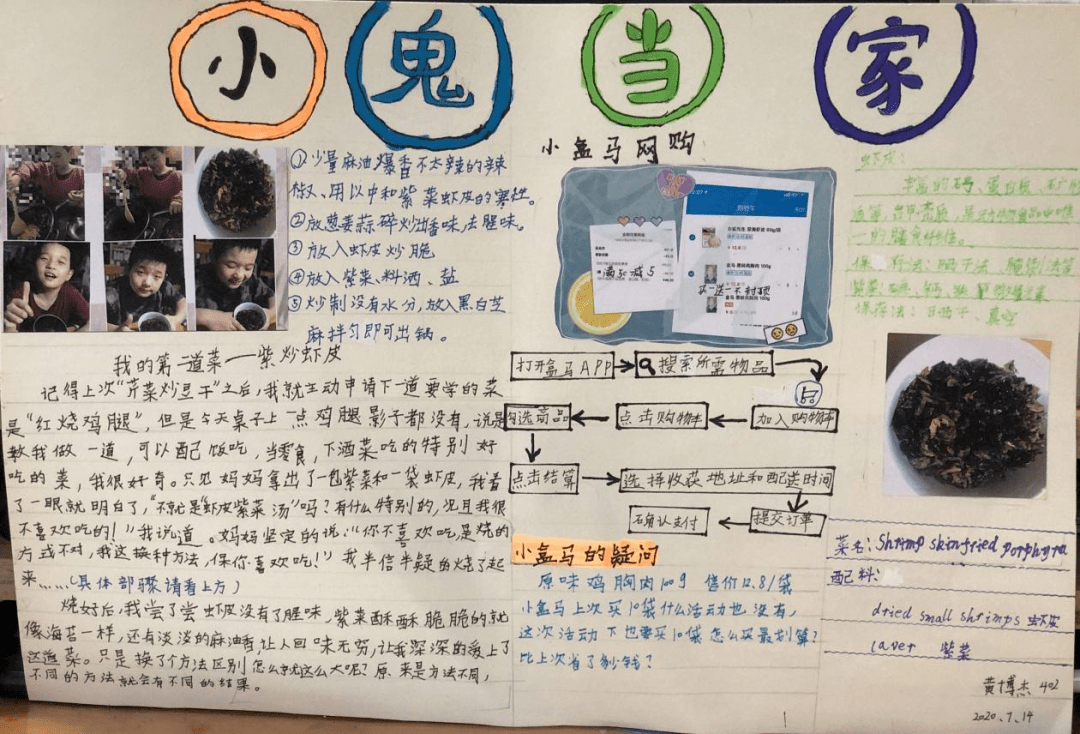 小鬼当家
①少量麻油爆香不太辣的辣
椒、用以中和紫菜虾皮的寒性。
②放葱姜蒜碎炒出香味,去腥味。
③放入虾皮炒脆
④放入紫菜、料酒、盐
⑤炒制没有水分,放入黑白芝
麻拌匀即可出锅。
我的第二道菜——紫炒虾皮
记得上次“芹菜炒豆干”之后,我就主动申请下一道要学的菜
是“红烧鸡腿”,但是今天桌子上一点鸡腿影子都没有,说是
教我做一道,可以配饭吃,当零食,下酒菜吃的特别好
吃的菜,我很好奇。只见妈妈拿出了一包紫菜和一袋虾皮,我看
了一眼就明白了,“不就是“虾皮紫菜汤”吗?有什么特别的,况且我很
不喜欢吃的!”我说道。妈妈坚定的说:“你不喜欢吃,是烧的
方式不对,我这换种方法,保你喜欢吃!”我半信半疑的烧了起
来……(具体部骤请看上方)
烧好后,我尝了尝虾皮没有了腥味,紫菜酥酥脆脆的就
像海苔一样,还有淡淡的麻油香,让人回味无穷,让我深深的爱上了
这道菜。只是换了个方法区别怎么就这么大呢?原来是方法不同,
不同的方法就会有不同的结果。
小盒马网购
购物车
满50减5
买一送一不封顶
打开盒马APP
搜索所需物品
点
加入购物车
点击购物车
勾选商品
点击结算
选择收获地址和配送时间
提交订单
确认支付
小盒马的疑问
原味鸡胸肉100g 售价12.8/袋
小盒马上次买10袋什么活动也没有,
这次活动下也要买10袋怎么买最划算?
比上次省了多少钱?
虾皮:
丰富的钙、蛋白质、
菜名:Shrimp skin fried porphyra
配料:
dried small shrimps 虾皮
laver 紫菜
黄博杰 402
2020.7.14